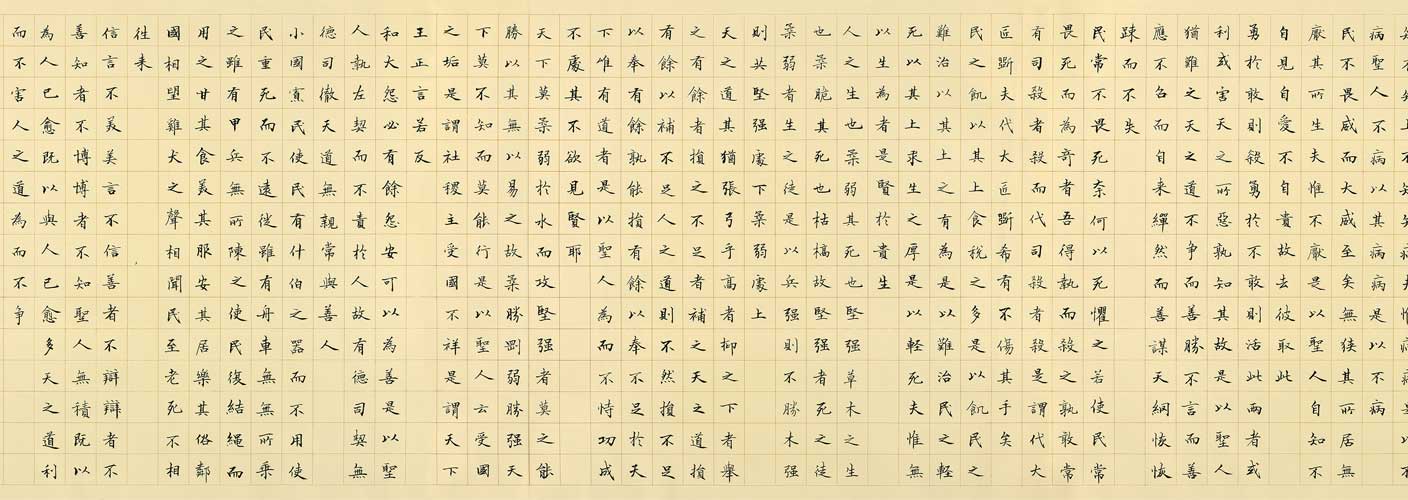 病聖人不病以其病病是以不病
民不畏威而大威至矣無狹其所居無
厭其所生夫惟不厭是以聖人自知不
自見自愛不自貴故去彼取此
勇於敢則殺勇於不敢則活此兩者或
利或害天之所惡孰知其故是以聖人
猶難之天之道不爭而善勝不言而善
應不召而自来繟然而善謀天網恢恢
踈而不失
民常不畏死奈何以死懼之若使民常
畏死而為奇者吾得執而殺之孰敢常
有司殺者殺而代司殺者殺是謂代大
匠斲夫代大匠斲希有不傷其手矣
民之飢以其上食稅之多是以飢民之
難治以其上之有為是以難治民之輕
死以其上求生之厚是以輕死夫惟無
以生為者是賢於貴生
人之生也柔弱其死也堅强草木之生
也柔脆其死也枯槁故堅强者死之徒
柔弱者生之徒是以兵强則不勝木强
則共堅强處下柔弱處上
天之道其猶張弓乎高者抑之下者舉
之有餘者損之不足者補之天之道損
有餘以補不足人之道則不然損不足
以奉有餘孰能損有餘以奉不足於天
下唯有道者是以聖人為而不恃功成
不處其不欲見賢耶
天下莫柔弱於水而攻堅强者莫之能
勝以其無以易之故柔勝剛弱勝强天
下莫不知而莫能行是以聖人云受國
之垢是謂社稷主受國不祥是謂天下
王正言若反
和大怨必有餘怨安可以為善是以聖
人執左契而不責於人故有德司契無
德司徹天道無親常與善人
小國寡民使民有什伯之器而不用使
民重死而不遠徙雖有舟車無無所乘
之雖有甲兵無所陳之使民復結繩而
用之甘其食美其服安其居樂其俗鄰
國相望雞犬之聲相聞民至老死不相
往来
信言不美美言不信善者不辯辯者不
善知者不博博者不知聖人無積既以
為人已愈既以與人已愈多天之道利
而不害人之道為而不爭